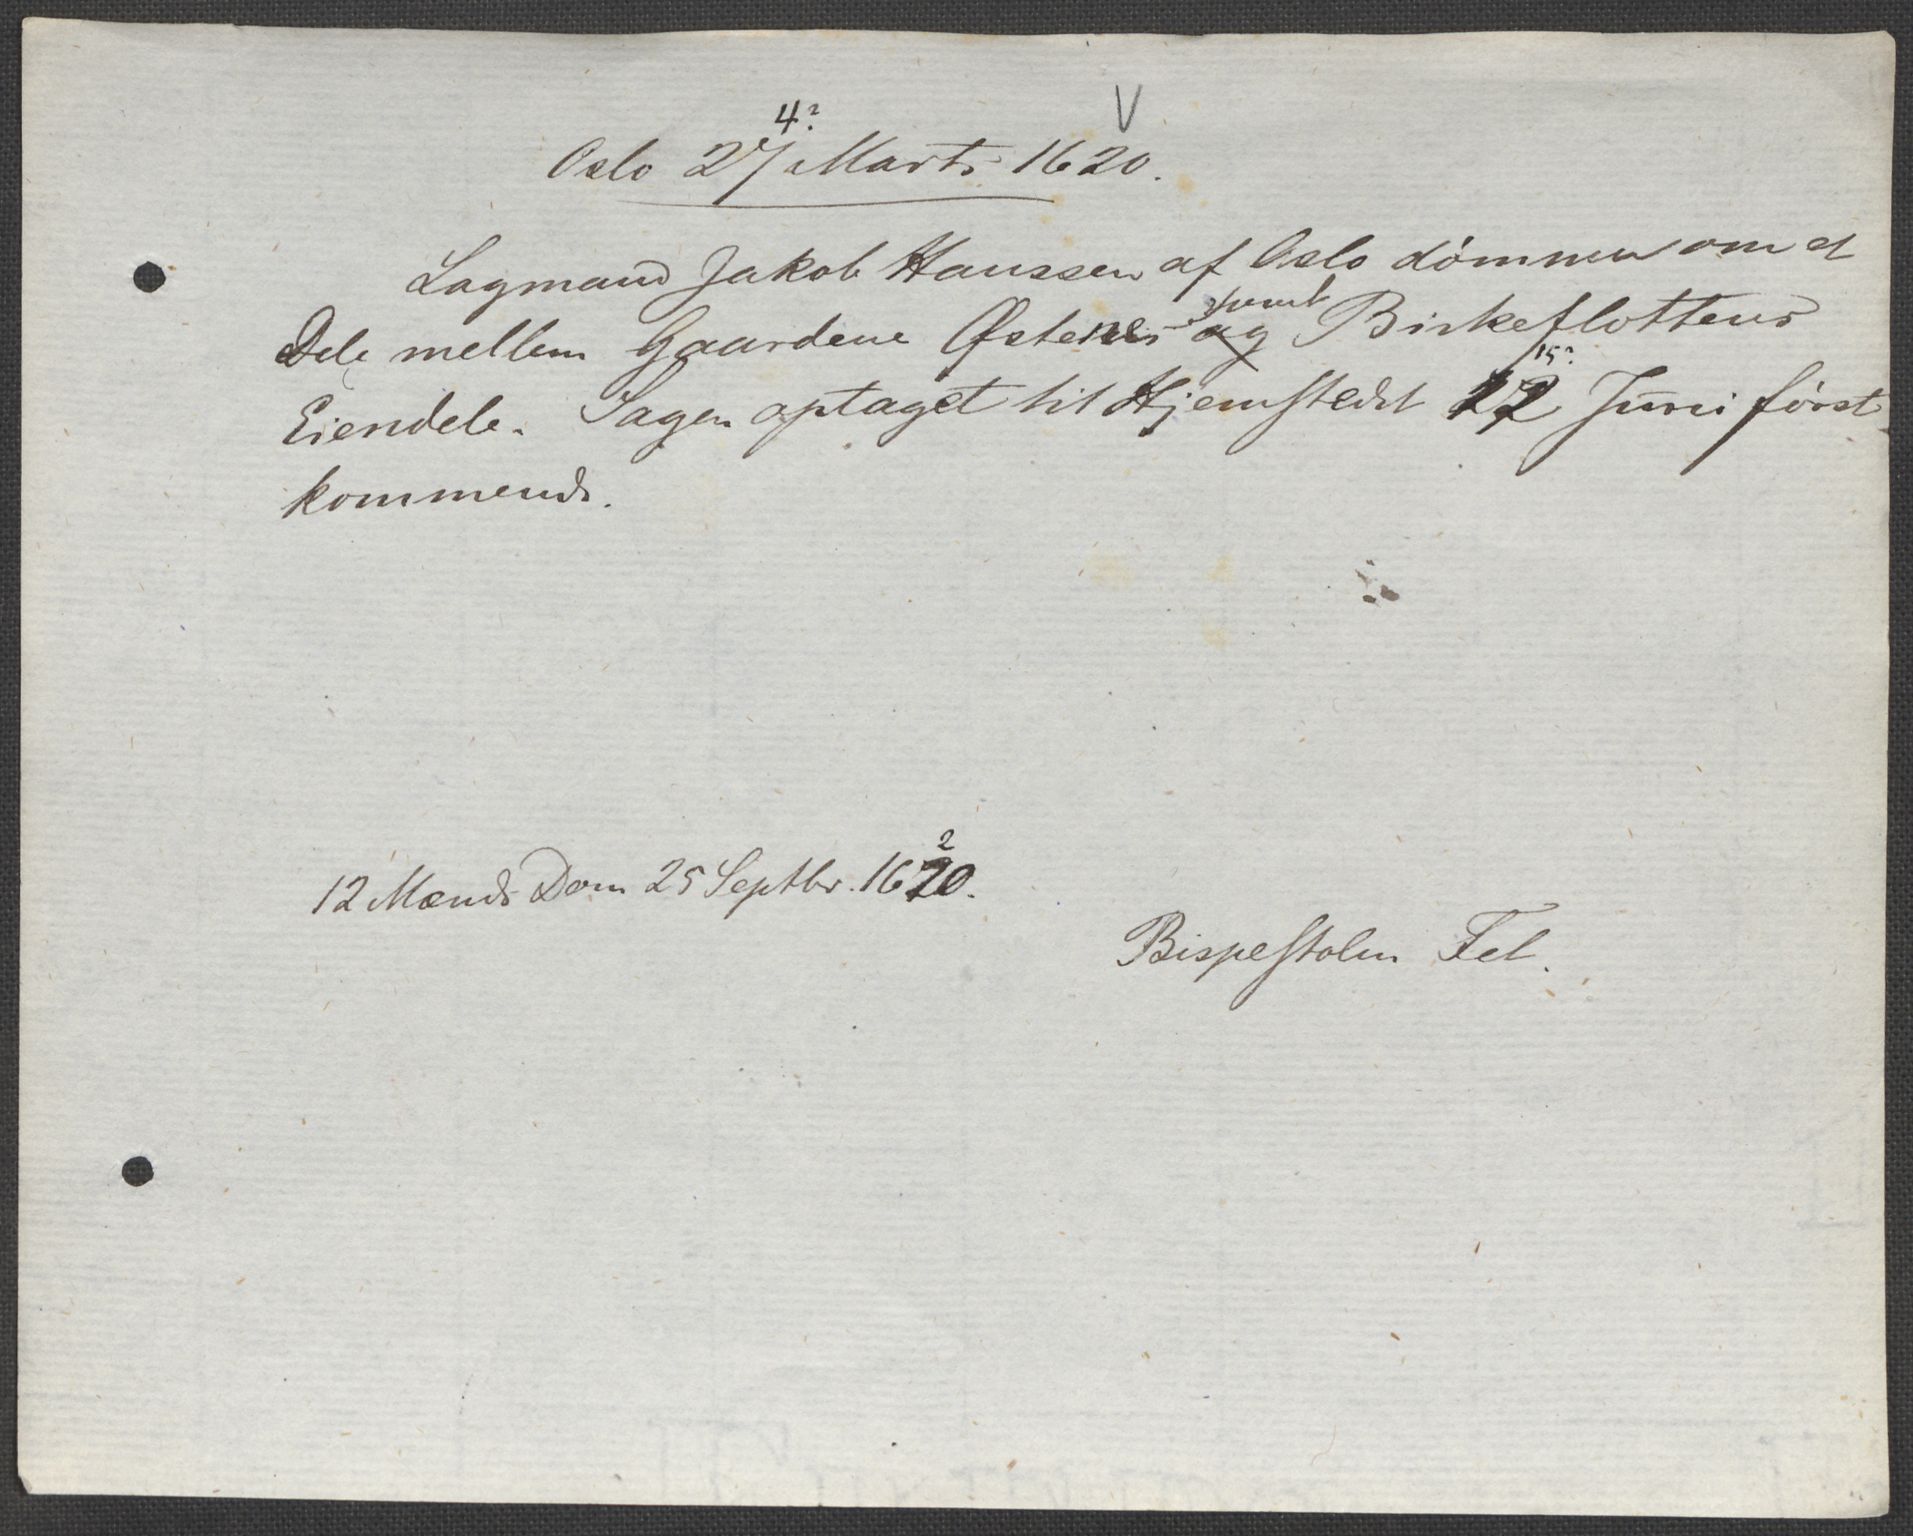 4?
V
Oslo 27 Marts 1620.
Lagmand Jakob Hanssen af Oslo dömmer om et
samt
Dele mellem Gaardene Østenes og Birkeflottens
15?
Eiendele. Sagen optaget til Hjemstedet 12 Juni först
kommende.
2
12 Mænds Dom 25 Septbr. 1620.
Bispestolen Tel.